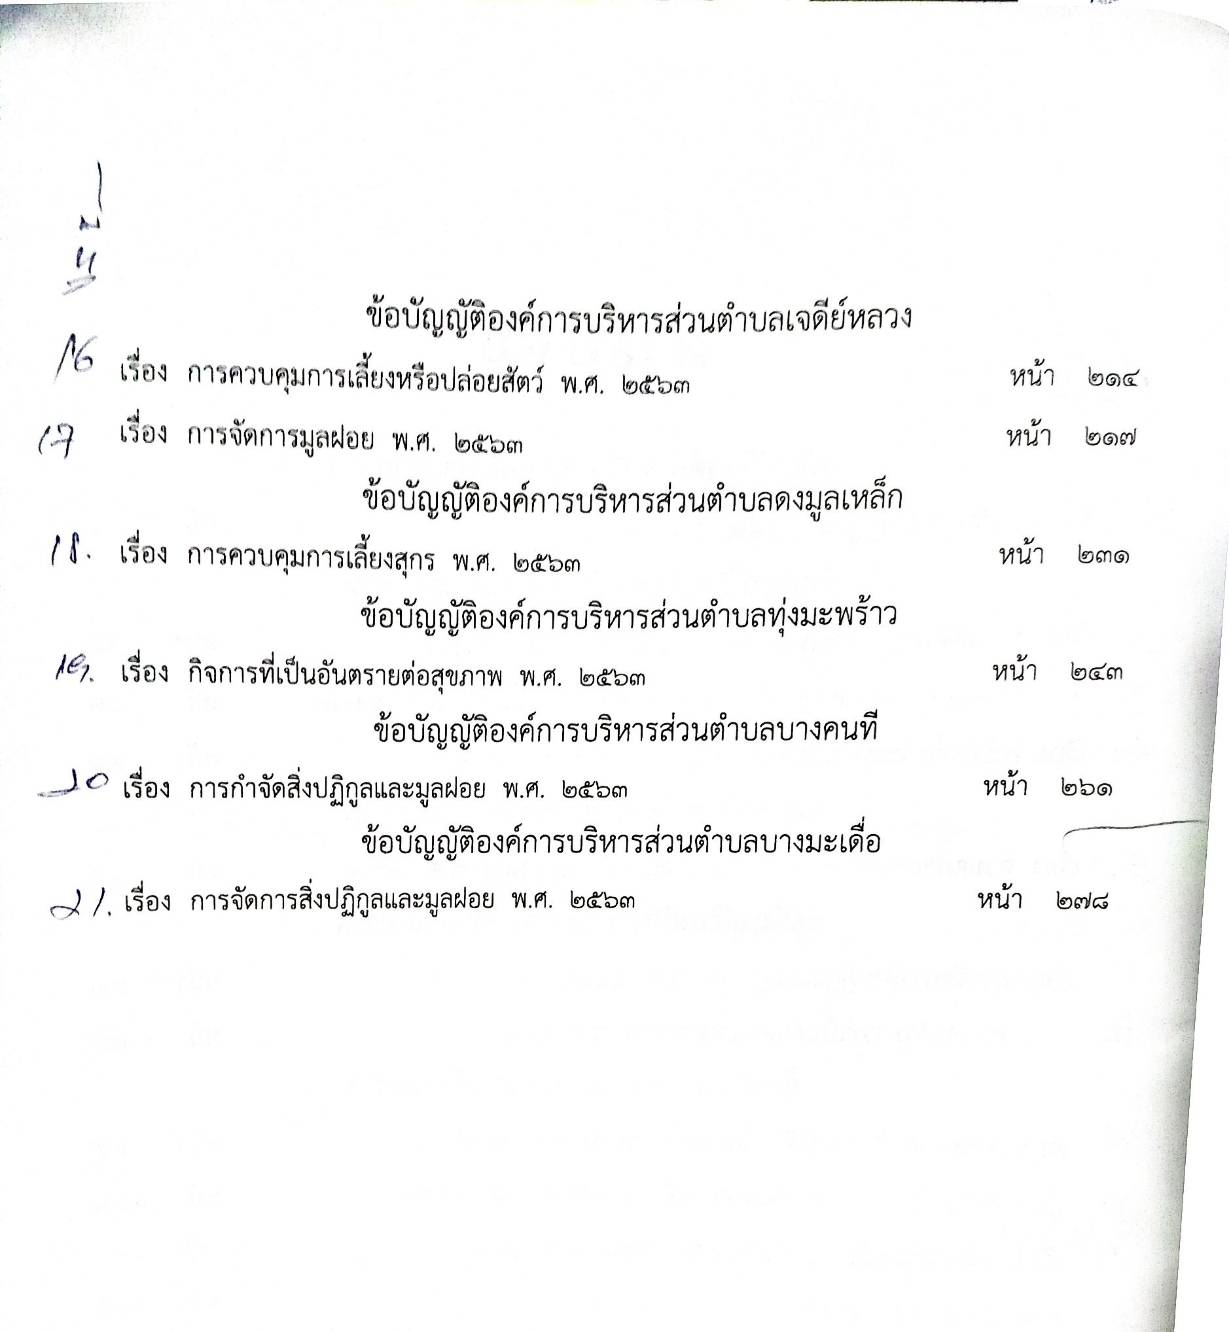 ข้อบัญญัติองค์การบริหารส่วนตำบลเจดีย์หลวง
16 เรื่อง การควบคุมการเลี้ยงหรือปล่อยสัตว์ พ.ศ. ๒๕๖๓ หน้า ๒๑๔
17 เรื่อง การจัดการมูลฝอย พ.ศ. ๒๕๖๓ หน้า ๒๑๗
ข้อบัญญัติองค์การบริหารส่วนตำบลดงมูลเหล็ก
18. เรื่อง การควบคุมการเลี้ยงสุกร พ.ศ. ๒๕๖๓ หน้า ๒๓๑
ข้อบัญญัติองค์การบริหารส่วนตำบลทุ่งมะพร้าว
19. เรื่อง กิจการที่เป็นอันตรายต่อสุขภาพ พ.ศ. ๒๕๖๓ หน้า ๒๔๓
ข้อบัญญัติองค์การบริหารส่วนตำบลบางคนที
20 เรื่อง การกำจัดสิ่งปฏิกูลและมูลฝอย พ.ศ. ๒๕๖๓ หน้า ๒๖๑
ข้อบัญญัติองค์การบริหารส่วนตำบลบางมะเดื่อ
21. เรื่อง การจัดการสิ่งปฏิกูลและมูลฝอย พ.ศ. ๒๕๖๓ หน้า ๒๗๘